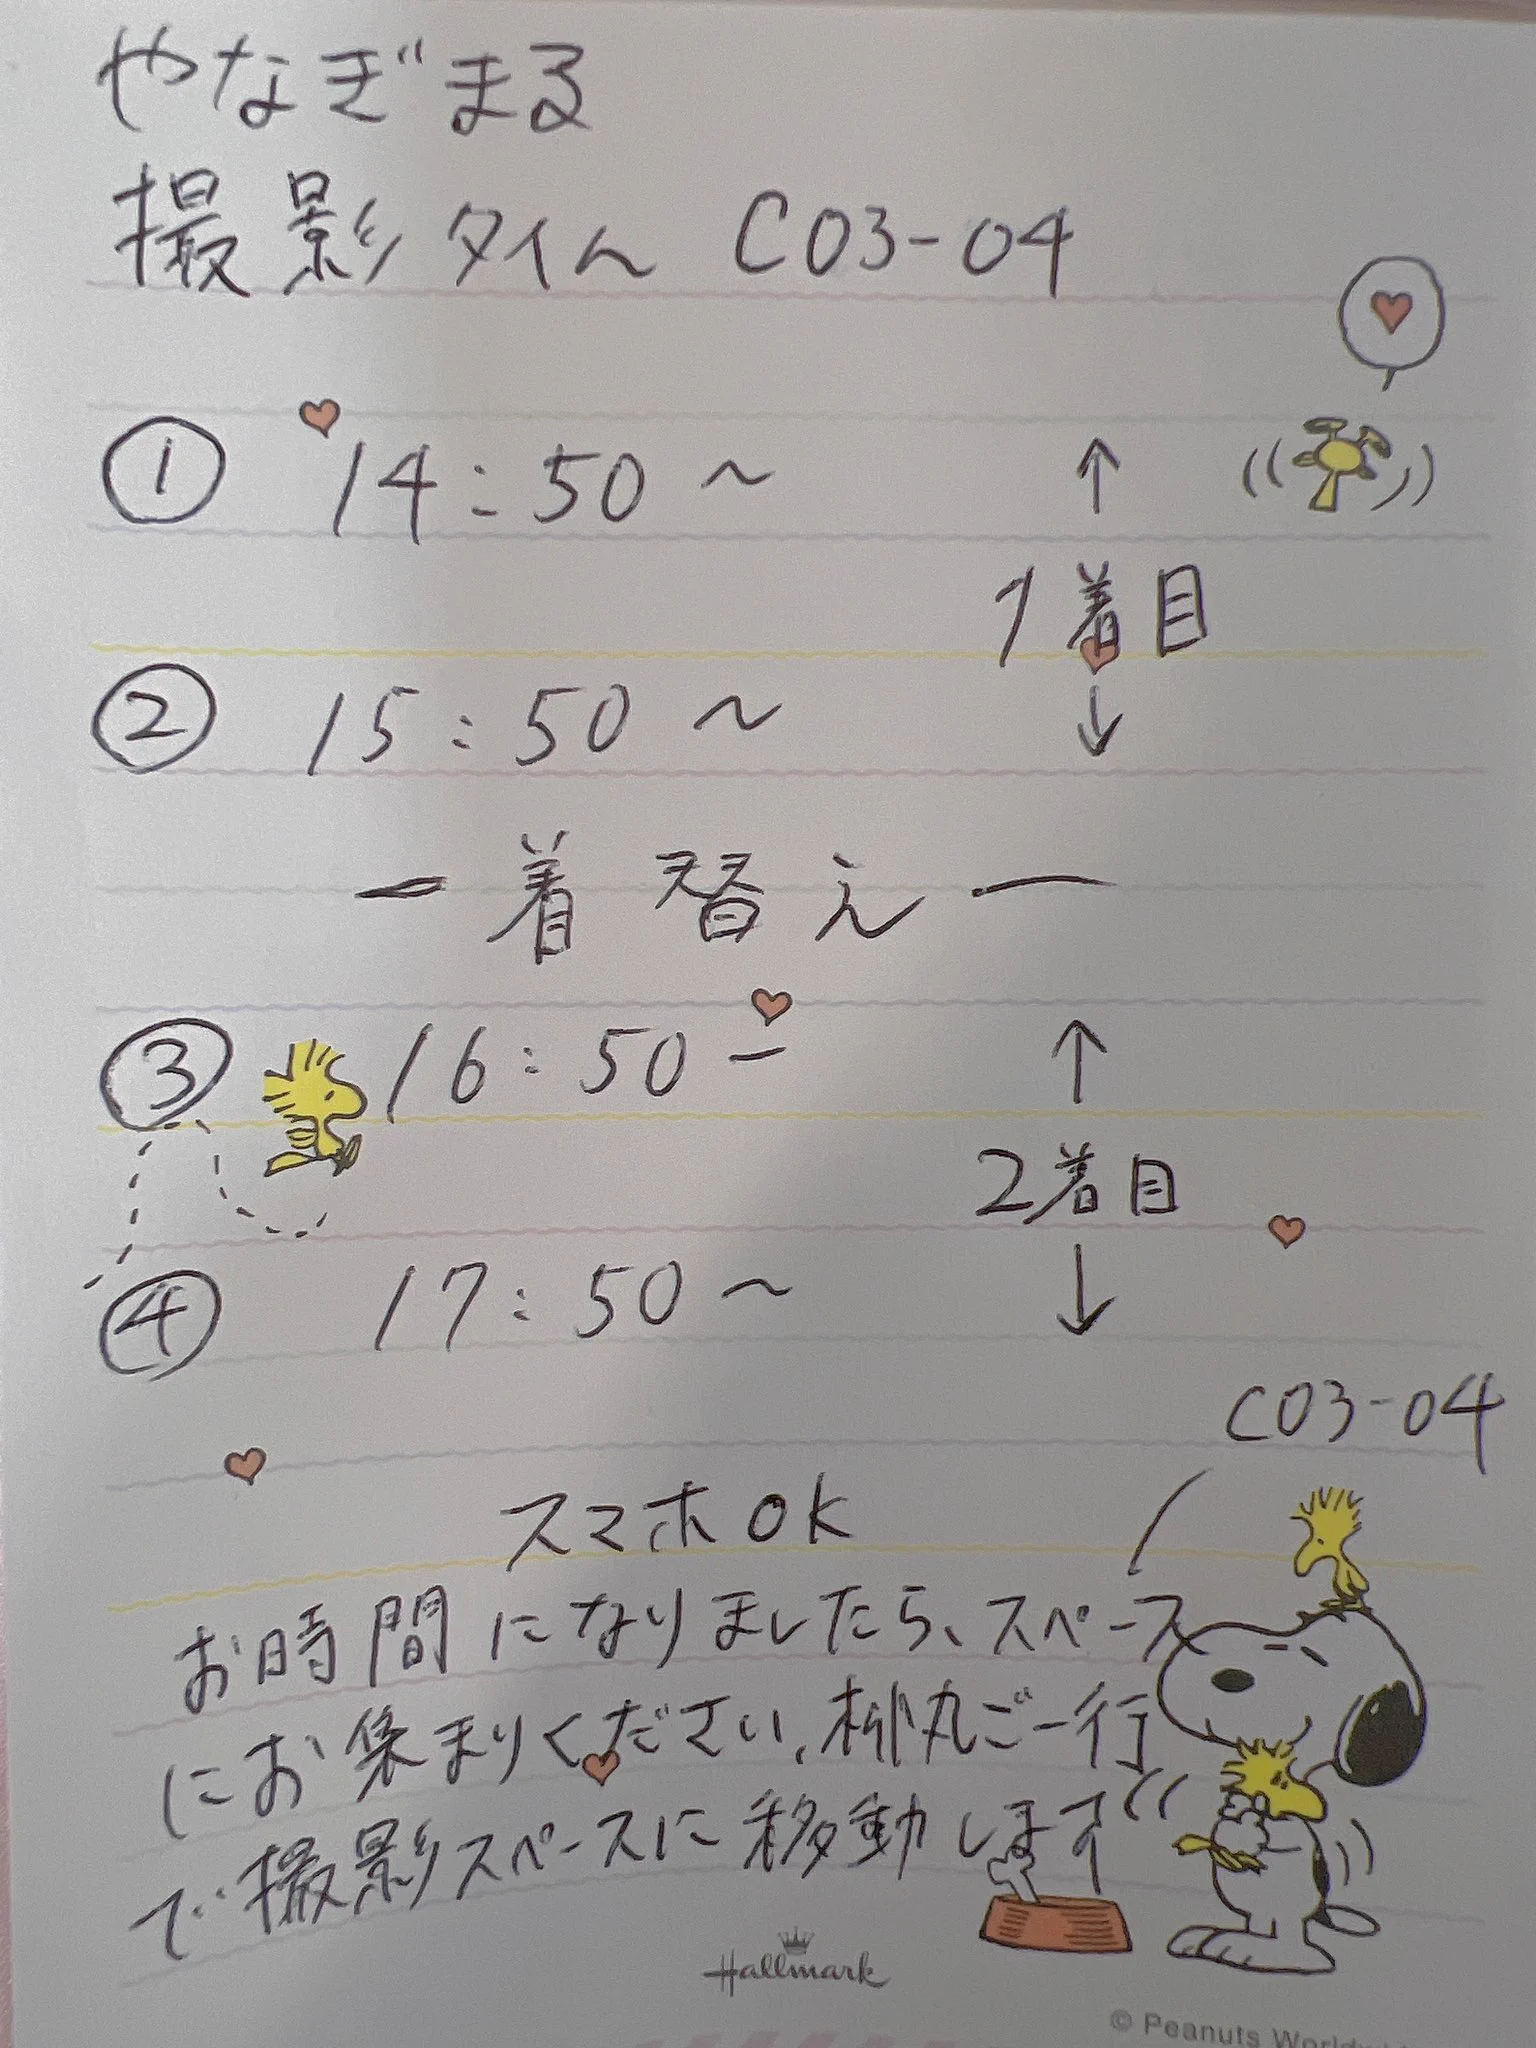 やなぎまる
撮影タイム C03-04
① 14:50～ ↑
1着目
② 15:50～ ↓
ー着替えー
③ 16:50ー ↑
2着目
④ 17:50～ ↓
C03-04
スマホOK
お時間になりましたら、スペース
にお集まりください、柳丸ご一行
で撮影スペースに移動します
Hallmark
© Peanuts